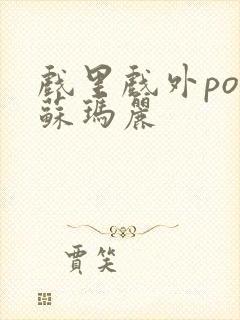 戲里戲外po
蘇瑪麗
賈笑